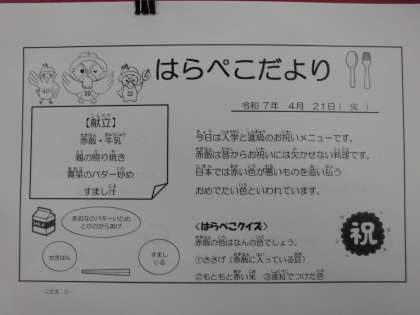 はらぺこだより
令和 7年 4月 21日( 火 )
【献立】
赤飯・牛乳
鶏の照り焼き
青菜のバター炒め
すまし汁
今日は入学と進級のお祝いメニューです。
赤飯は昔からお祝いには欠かせない料理です。
日本では赤い色が悪いものを追い払う
おめでたい色といわれています。
あおなのバターいため
とりのからあげ
せきはん
すまし
じる
<はらぺこクイズ>
赤飯の色はなんの色でしょう。
①ささげ(赤飯に入っている豆)
②もともと赤い米 ③食紅でつけた色
祝